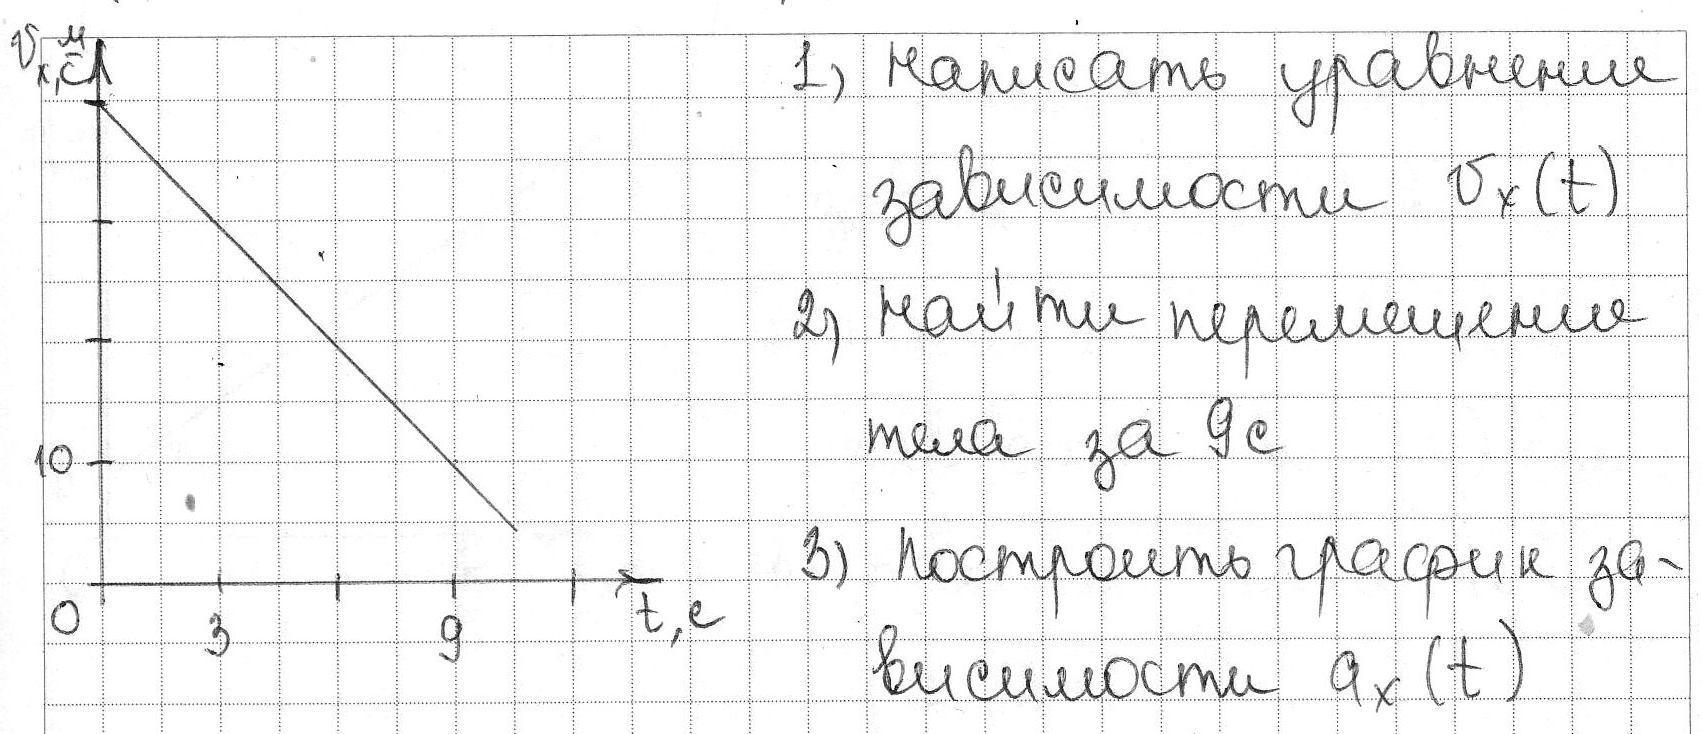 υx, м/с
10
0
3
9
t, с
1) Написать уравнение
зависимости υx(t)
2) Найти перемещение
тела за 9с
3) Построить график за-
висимости ax(t)